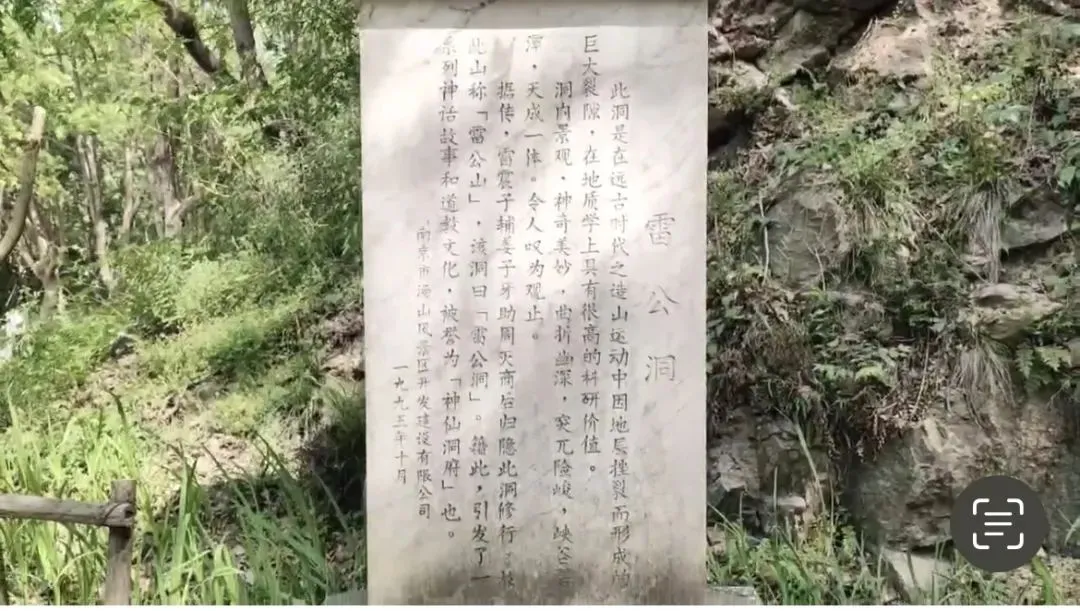 雷公洞
此洞是在远古时代之造山运动中因地层挫裂而形成的
巨大裂隙，在地质学上具有很高的科研价值。
洞内景观，神奇美妙，曲折幽深，突兀险峻，峡谷
潭，天成一体。令人叹为观止。
据传，雷震子辅姜子牙助周灭商后归隐此洞修行。故
此山称「雷公山」，该洞曰「雷公洞」。籍此，引发了一
系列神话故事和道教文化，被誉为「神仙洞府」也。
南京市汤山风景区开发建设有限公司
一九九三年十月